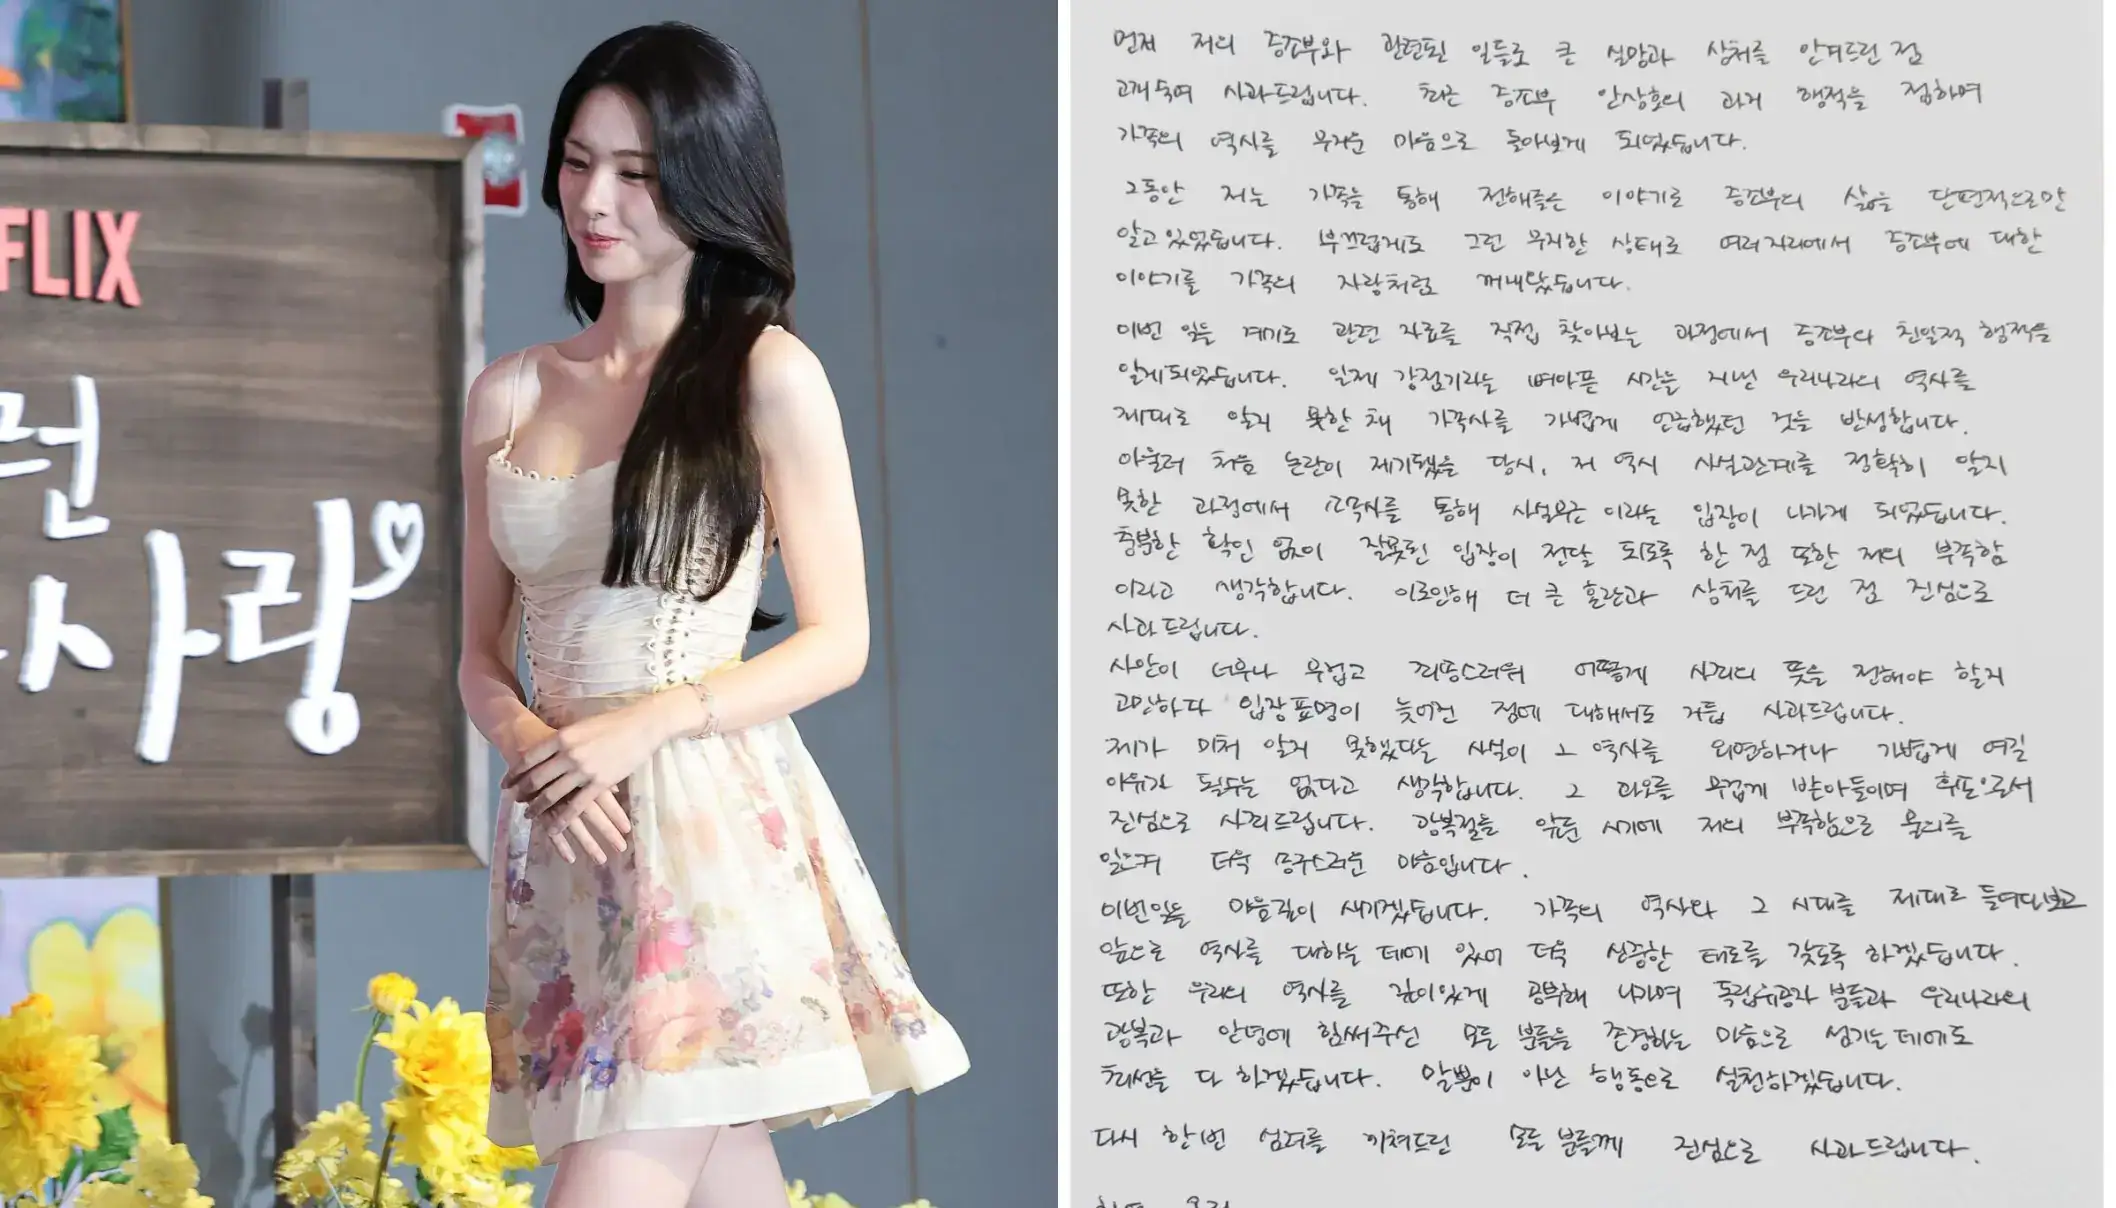 FLIX
런
사랑
먼저 저의 증조부와 관련된 일들로 큰 실망과 상처를 안겨드린 점
고개 숙여 사과드립니다. 최근 증조부 안상호의 과거 행적을 접하며
가족의 역사를 무거운 마음으로 돌아보게 되었습니다.
그동안 저는 가족을 통해 전해들은 이야기로 증조부의 삶을 단편적으로만
알고 있었습니다. 부끄럽게도 그런 무지한 상태로 여러 자리에서 증조부에 대한
이야기를 가족의 자랑처럼 꺼내왔습니다.
이번 일을 계기로 관련 자료를 직접 찾아보는 과정에서 증조부의 친일적 행적을
알게 되었습니다. 일제 강점기라는 뼈아픈 시간을 지낸 우리나라의 역사를
제대로 알지 못한 채 가족사를 가볍게 언급했던 것을 반성합니다.
아울러 처음 논란이 제기됐을 당시, 저 역시 사실관계를 정확히 알지
못한 과정에서 소속사를 통해 사실무근이라는 입장이 나가게 되었습니다.
충분한 확인 없이 잘못된 입장이 전달 되도록 한 점 또한 저의 부족함
이라고 생각합니다. 이로인해 더 큰 혼란과 상처를 드린 점 진심으로
사과드립니다.
사안이 너무나 무겁고 죄송스러워 어떻게 사죄의 뜻을 전해야 할지
고민하다 입장표명이 늦어진 점에 대해서도 거듭 사과드립니다.
제가 미처 알지 못했다는 사실이 그 역사를 외면하거나 가볍게 여길
이유가 될수는 없다고 생각합니다. 그 과오를 무겁게 받아들이며 후손으로서
진심으로 사죄드립니다. 광복절을 앞둔 시기에 저의 부족함으로 물의를
일으켜 더욱 송구스러운 마음입니다.
이번일을 마음깊이 새기겠습니다. 가족의 역사와 그 시대를 제대로 들여다보고
앞으로 역사를 대하는 데에 있어 더욱 신중한 태도를 갖도록 하겠습니다.
또한 우리의 역사를 깊이있게 공부해 나가며 독립유공자 분들과 우리나라의
광복과 안녕에 힘써주신 모든 분들을 존경하는 마음으로 섬기는 데에도
최선을 다 하겠습니다. 말뿐이 아닌 행동으로 실천하겠습니다.
다시 한번 심려를 끼쳐드린 모든 분들께 진심으로 사과드립니다.